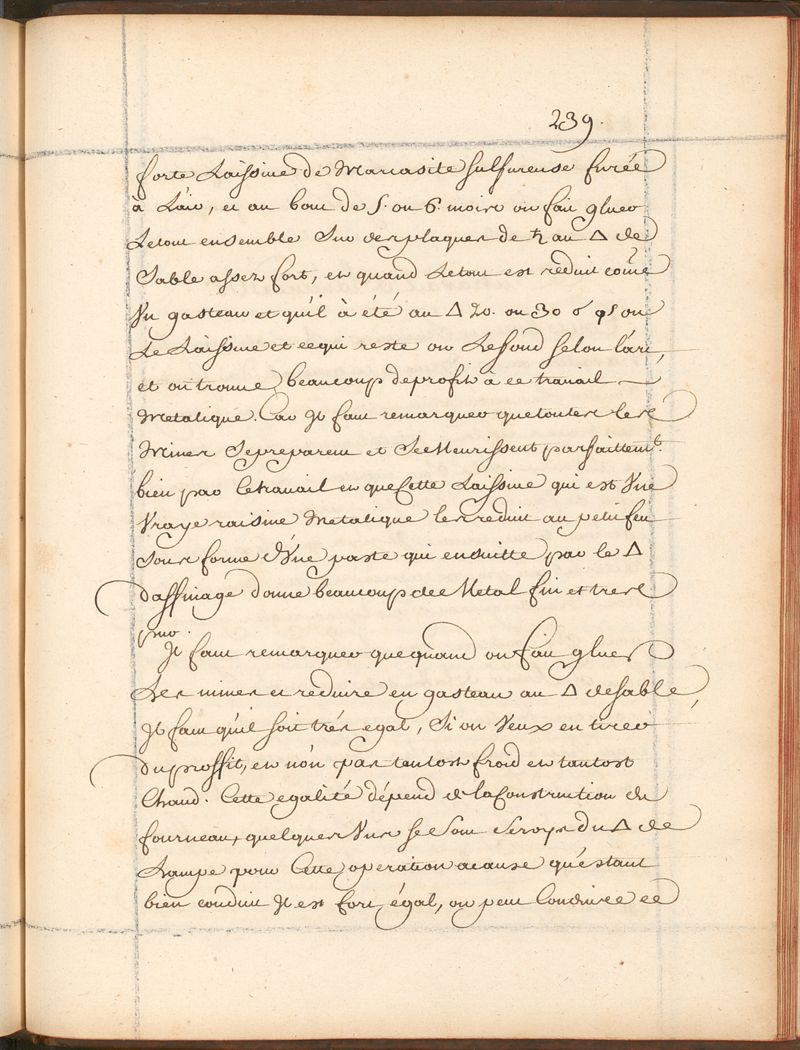 239.
forte Laissive de Marcasite sulfureuse tirée
à L'air, et au bout de 5. ou 6. mois on fait gluer
Letout ensemble sur des plaques de ♄ au △ de
Sable assez fort, et quand Letout est reduit come
Vn gasteau et qu'il à été au △ 20. ou 30 on
Le Laissive et ce qui reste on Lefond selon l'art,
et on trouve beaucoup deprofit à ce travail
Metalique. Car Jl faut remarquer que toutes les
Mines Sepreparent et SeMeurissent parfaittemt.
bien par letravail et que Cette Laissive qui est Vne
Vraye raisine Metalique les reduit au petit feu
sous forme d'Vne paste qui ensuitte par le △
d'affinage donne beaucoup de Metal fin et tres
pur.
Jl faut remarquer que quand on fait gluer
Les mines et reduire en gasteau au △ desable,
Jl faut qu'il soit trés egal, Si on Veux en tirer
du proffit, et non pas tantost froid et tantost
Chaud. Cette egalité dépend de laConstruction du
fourneau, quelques Vns se sont servys du △ de
Lampe pour Cette operation acause qu'estant
bien conduit Jl est fort égal, on peut Conduire ce